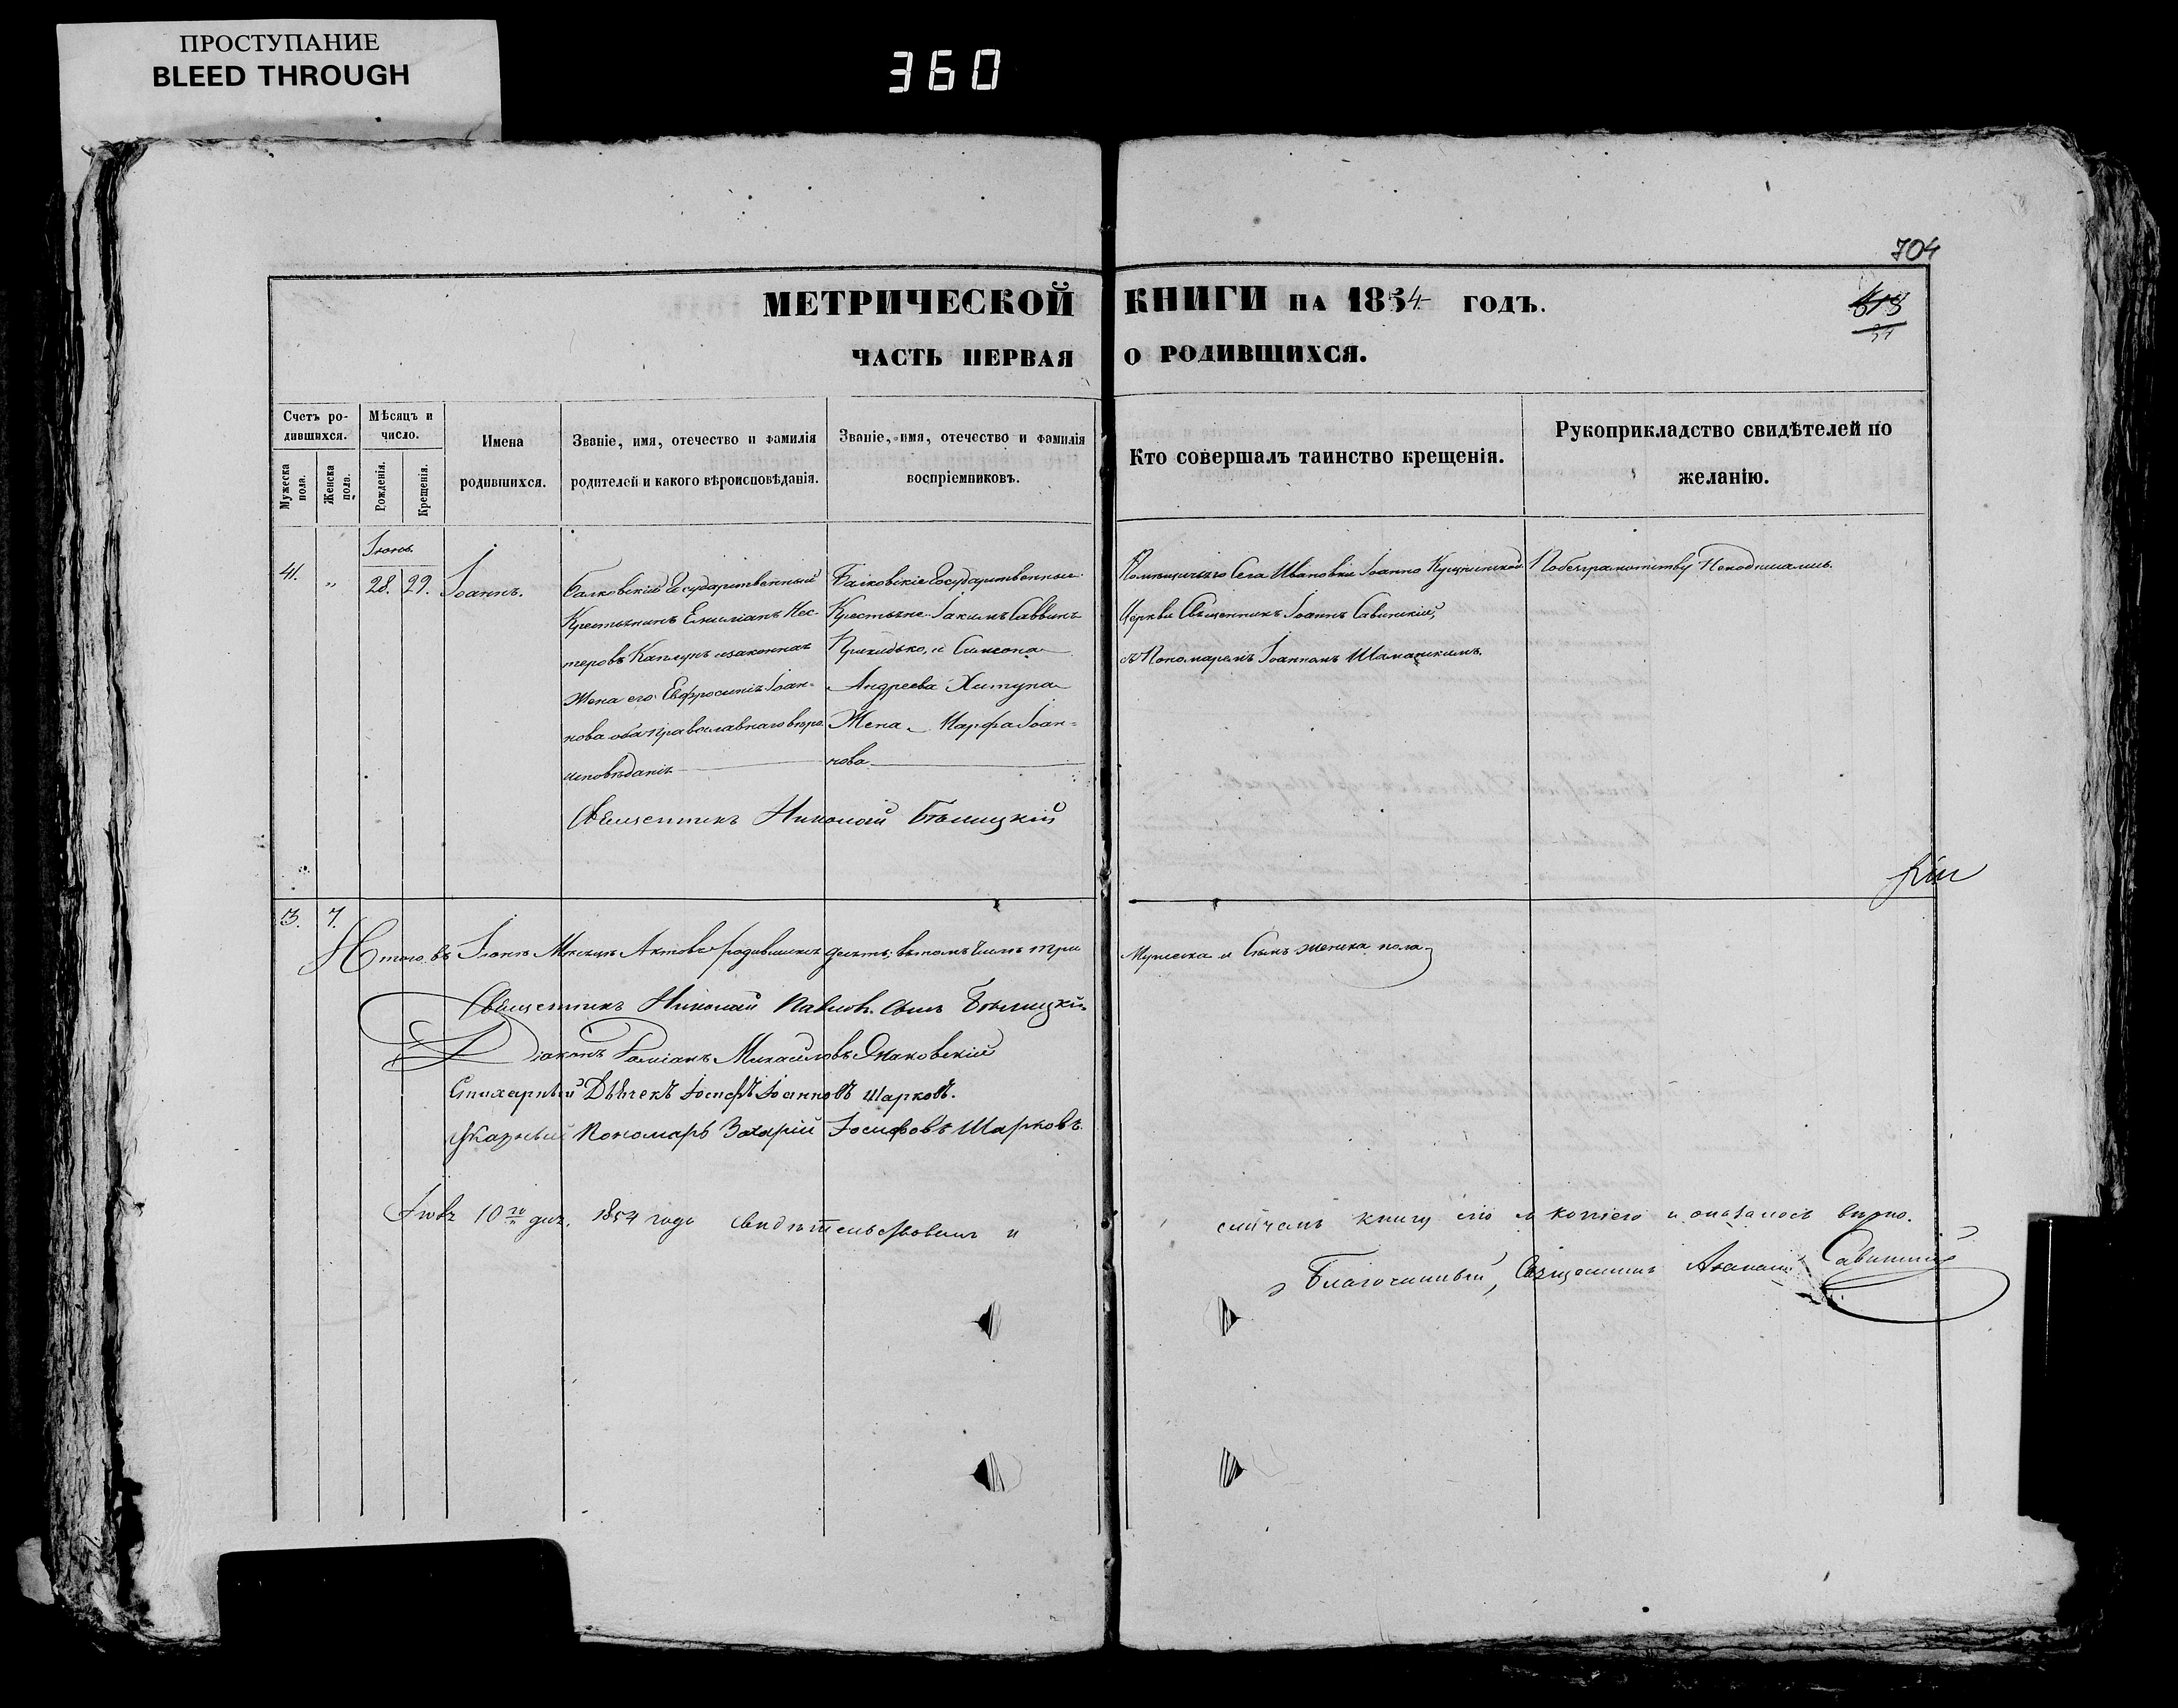 ПРОСТУПАНИЕ
BLEED THROUGH
360
704
МЕТРИЧЕСКОЙ КНИГИ НА 1854 ГОДЪ.
ЧАСТЬ ПЕРВАЯ О РОДИВШИХСЯ.
Счетъ ро-
дившихся.
Мужеска пола.
Женска пола.
Мѣсяцъ и
число.
Рожденія.
Крещенія.
Имена
родившихся.
Званіе, имя, отечество и фамилія
родителей и какого вѣроисповѣданія.
Званіе, имя, отечество и фамилія
воспріемниковъ.
Кто совершалъ таинство крещенія.
Рукоприкладство свидѣтелей по
желанію.
Іюнь
41. „ 28. 29. Іоаннъ.
Балковскій Государственный
Крестьянинъ Емиліанъ Нес-
теровъ Каплунъ изаконная
Жена его Евфросинія Іоан-
нова оба православнаго вѣро
исповѣданія
Балковскіе Государственные
Крестьяне Іакимъ Саввинъ
Приходько, и Симеона
Андреева Хитуна
Жена Марфа Іоан-
нова
Помѣщичьяго Села Ивановки Іоанно
Церкви Священникъ Іоаннъ Савицкій,
съ Пономаремъ Іоанномъ Шаманскимъ.
Побезграмотству Неподписались.
Священникъ Николай Бѣлицкій
3. 7.
Итого въ Іюнѣ Мѣсяцѣ Актовъ родившихся десять; втомъ Числѣ три
Мужеска и Семь женска пола
Священникъ Николай Павловъ Сынъ Бѣлицкій
Діаконъ Даміанъ Михаиловъ Онаковскій
Стихарный Дьячекъ Іосифъ Іоанновъ Шарковъ.
Указный Пономарь Захарій Іосифовъ Шарковъ.
10го дня. 1854 года свидѣтельствовалъ и
сличалъ книгу сію с копіею и оказалось вѣрно.
Благочинный, Священникъ Савицкій